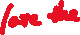 love the